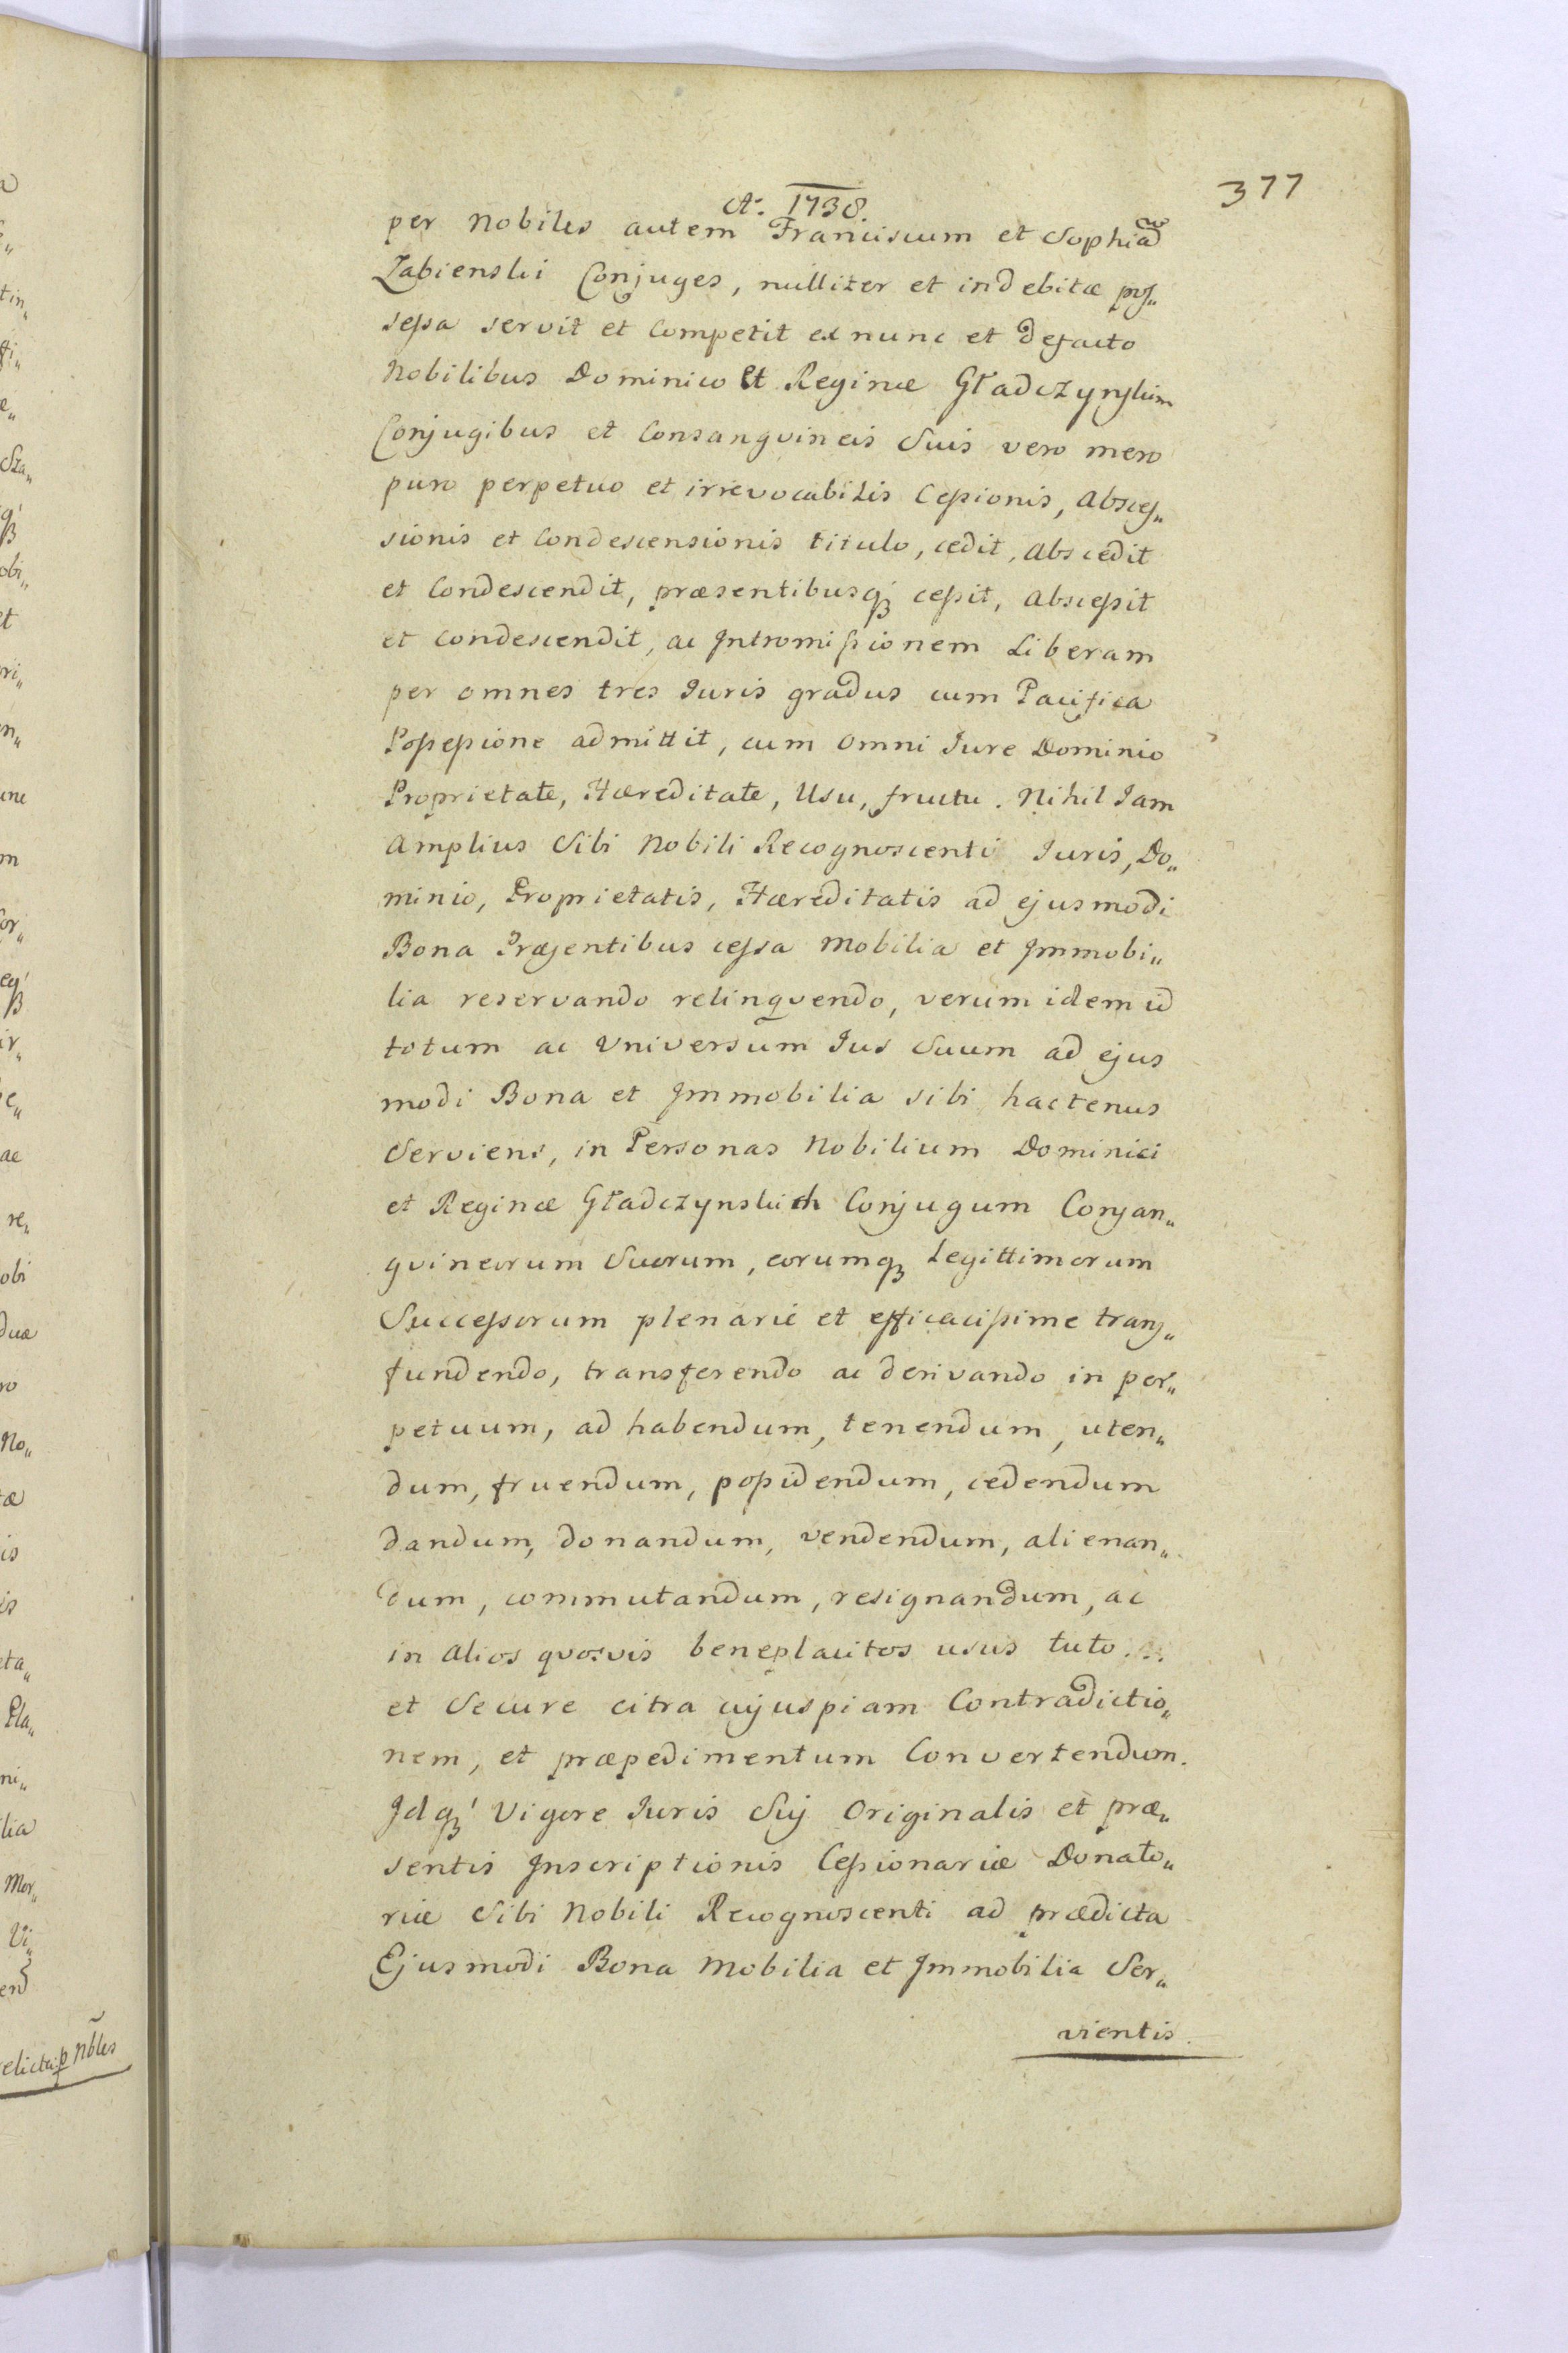 377
A: 1738.
per Nobiles autem Franciscum et Sophiã
Zabienski Conjuges, nulliter et indebitæ pos„
sessa servit et Competit ex nunc et defacto
Nobilibus Dominico Et Reginæ Gładczynskim
Conjugibus et Consangvineis Suis vero mero
puro perpetuo et irrevocabilis Cessionis, Absces„
sionis et Condescensionis titulo, cedit, Abscedit
et Condescendit, præsentibusq₃ cessit, Abscessit
et Condescendit, ac Intromissionem Liberam
per omnes tres Iuris gradus cum Pacifica
Possessione admittit, cum Omni Iure Dominio
Proprietate, Hæreditate, Usu, fructu. Nihil Iam
Amplius Sibi Nobili Recognoscenti Iuris, Do„
minio, Proprietatis, Hæreditatis ad ejusmodi
Bona Præsentibus cessa Mobilia et Immobi„
lia reservando relinqvendo, verum idem id
totum ac Universum Ius Suum ad ejus
modi Bona et Immobilia sibi hactenus
Serviens, in Personas Nobilium Dominici
et Reginæ Gładczynskich Conjugum Consan„
gvineorum Suorum, eorumq₃ Legittimorum
Successorum plenarie et efficacissime trans„
fundendo, transferendo ac derivando in per„
petuum, ad habendum, tenendum, uten„
dum, fruendum, possidendum, cedendum
dandum, donandum, vendendum, alienan„
dum, commutandum, resignandum, ac
in Alios quosvis beneplacitos usus tuto
et Secure citra cujuspiam Contradictio„
nem, et præpedimentum Convertendum.
Idq₃ Vigore Iuris Sui Originalis et præ„
sentis Inscriptionis Cessionariæ Donato„
riæ Sibi Nobili Recognoscenti ad prædicta
Ejusmodi Bona Mobilia et Immobilia Ser„
vientis.